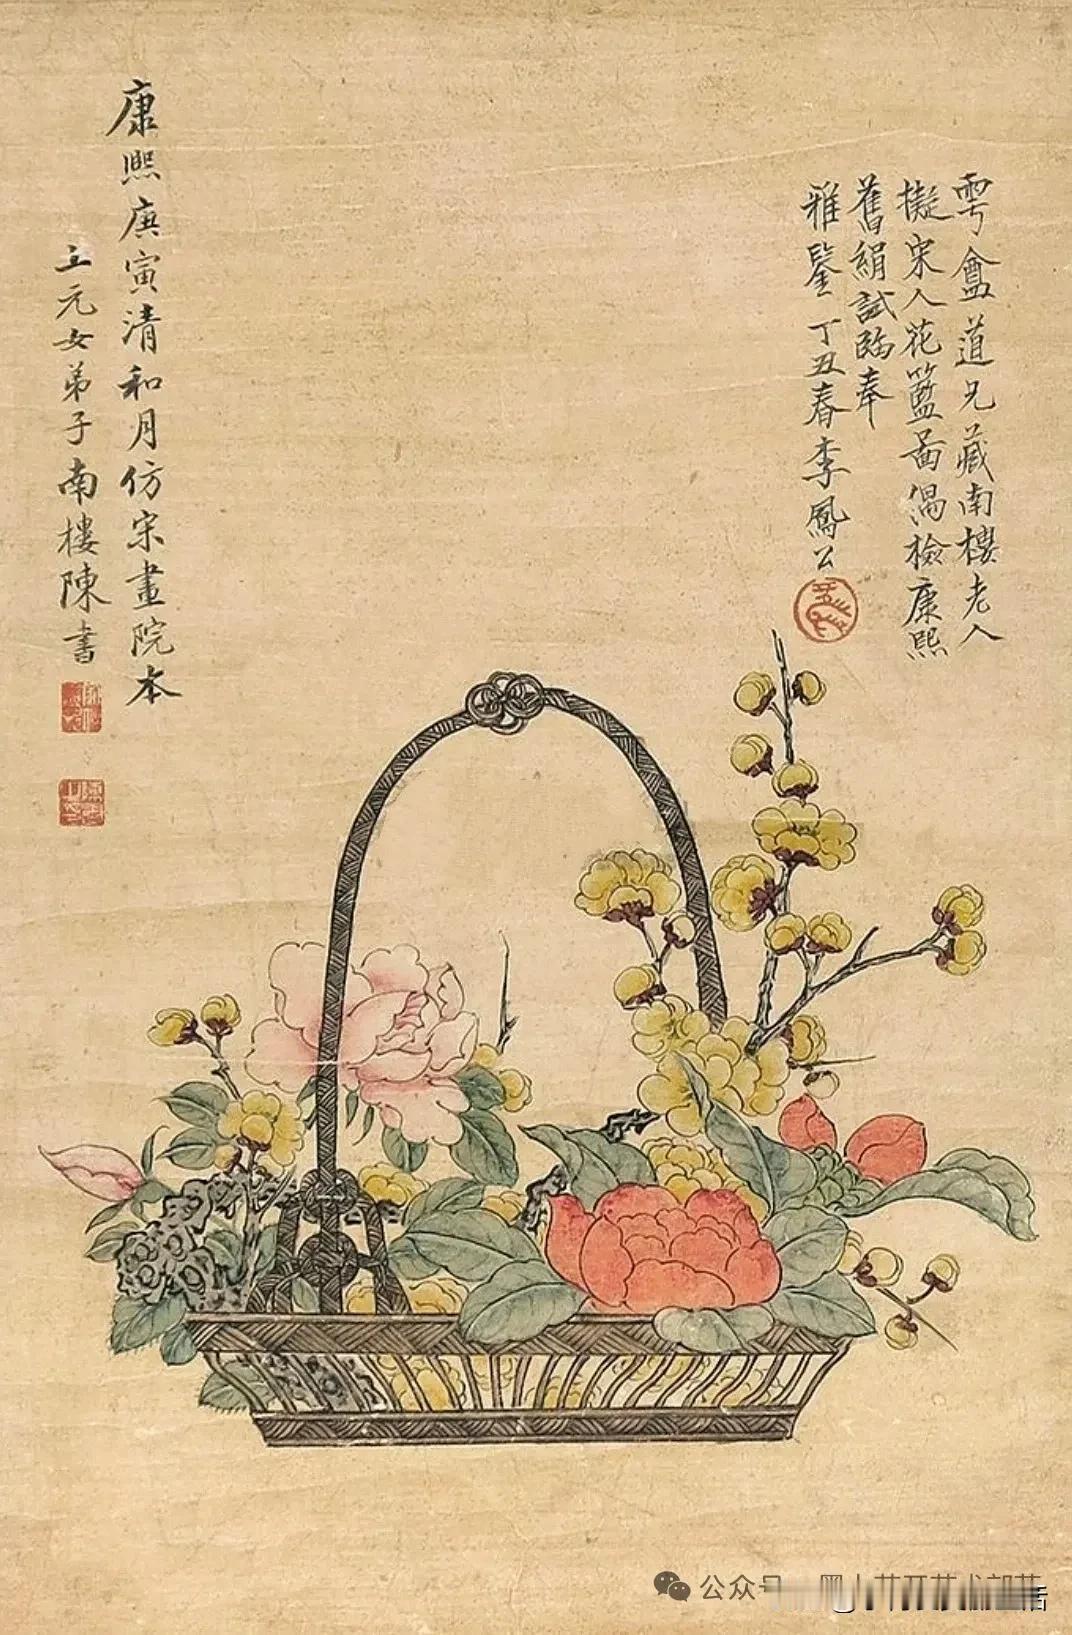 雩盦道兄藏南樓老人
擬宋人花籃啚偶檢康熙
舊絹試臨奉
雅鑒丁丑春李鳳公
康熙庚寅清和月仿宋畫院本
上元女弟子南樓陳書
公众号